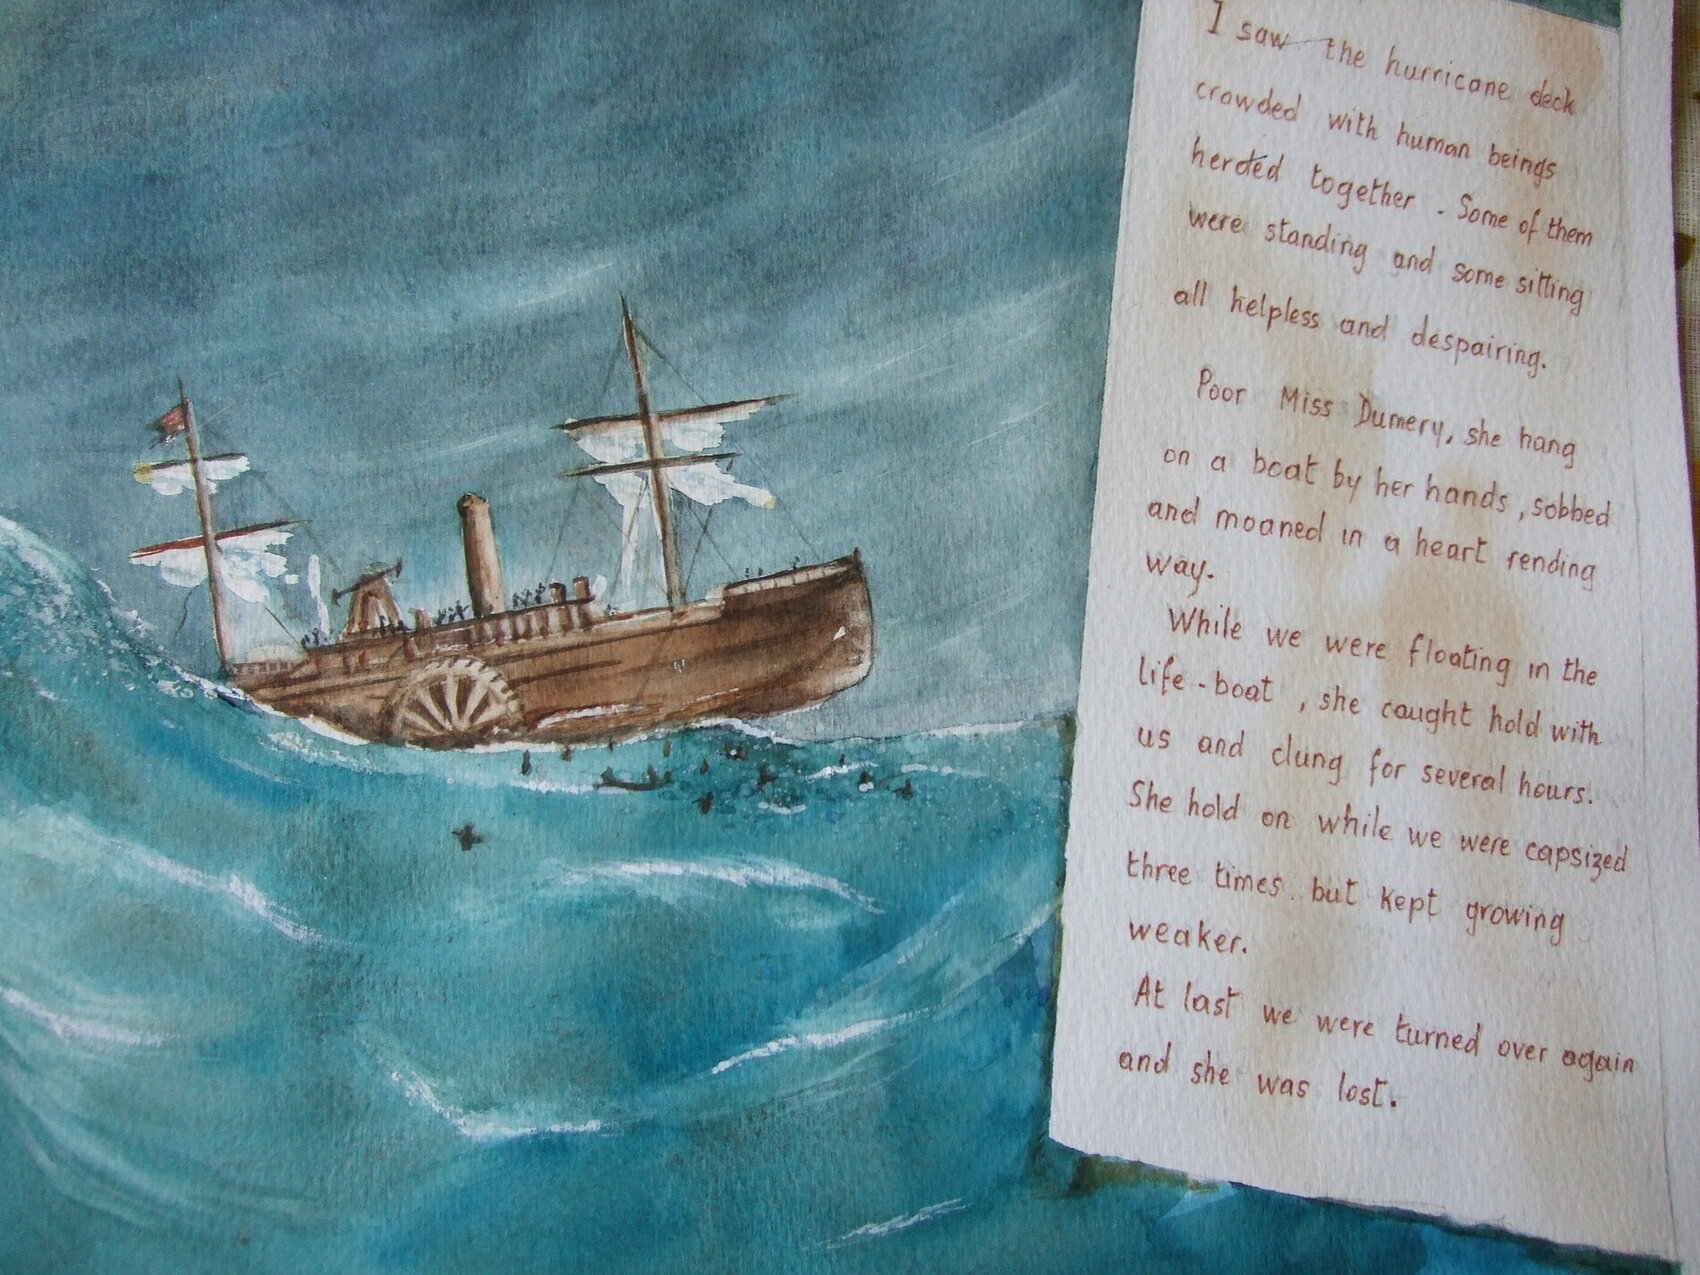 I saw the hurricane deck
crowded with human beings
herded together. Some of them
were standing and some sitting
all helpless and despairing.
Poor Miss Dumery, she hang
on a boat by her hands, sobbed
and moaned in a heart rending
way.
While we were floating in the
life-boat, she caught hold with
us and clung for several hours.
She hold on while we were capsized
three times but kept growing
weaker.
At last we were turned over again
and she was lost.